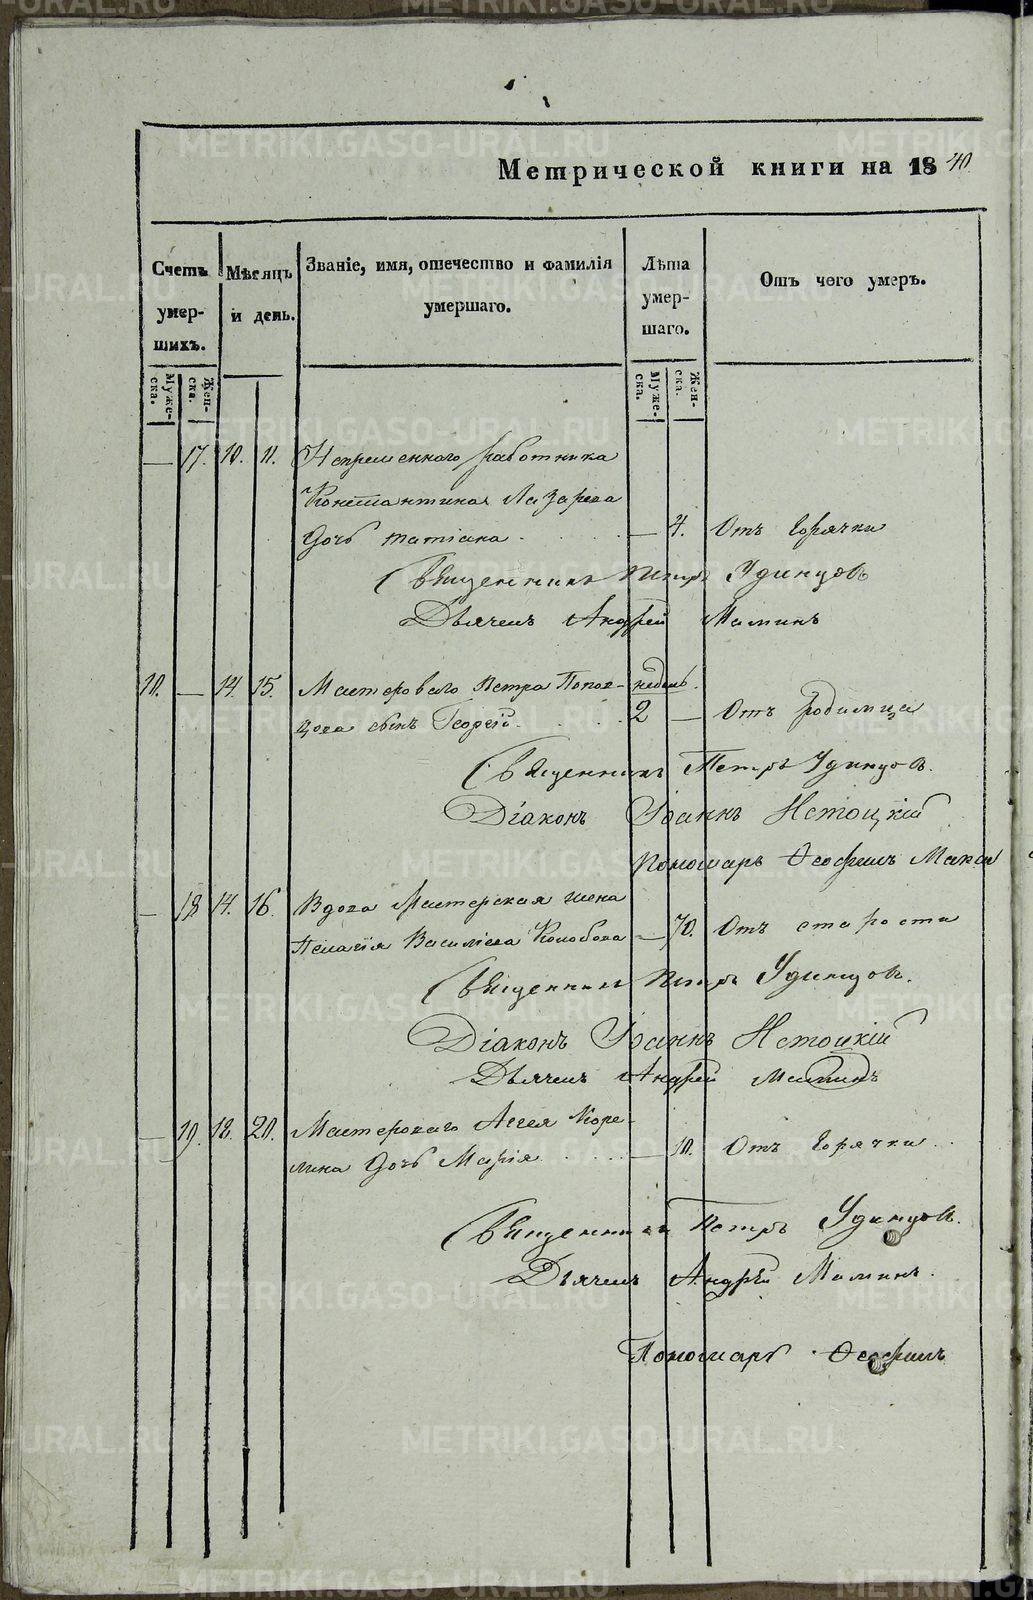 Метрической книги на 1840
Счетъ умер-шихъ.
Муже-ска.
Жен-ска.
Мѣсяцъ и день.
Званіе, имя, отечество и фамилія умершаго.
Лѣта умер-шаго.
Муже-ска.
Жен-ска.
Отъ чего умеръ.
— 17. 10. 11. Непременнаго работника
Константина Лазарева
дочь Татіана — 4. Отъ горячки
Священникъ Петръ Удинцовъ
Дьячекъ Андрей Маминъ
10. — 14. 15. Мастероваго Петра Попов- недель.
цова сынъ Георгій 2 — Отъ родимца
Священникъ Петръ Удинцовъ.
Діаконъ Іоаннъ Нетоцкій
Пономарь Ѳеофилъ
— 18 14. 16. Вдова Мастерская жена
Пелагія Василіева Колобова — 70. Отъ старости
Священникъ Петръ Удинцовъ.
Діаконъ Іоаннъ Нетоцкій
Дьячекъ Андрей Маминъ
— 19. 18. 20. Мастероваго Аггея Коре-
лина дочь Марія — 10. Отъ горячки
Священникъ Петръ Удинцовъ.
Дьячекъ Андрей Маминъ.
Пономарь Ѳеофилъ
METRIKI.GASO-URAL.RU